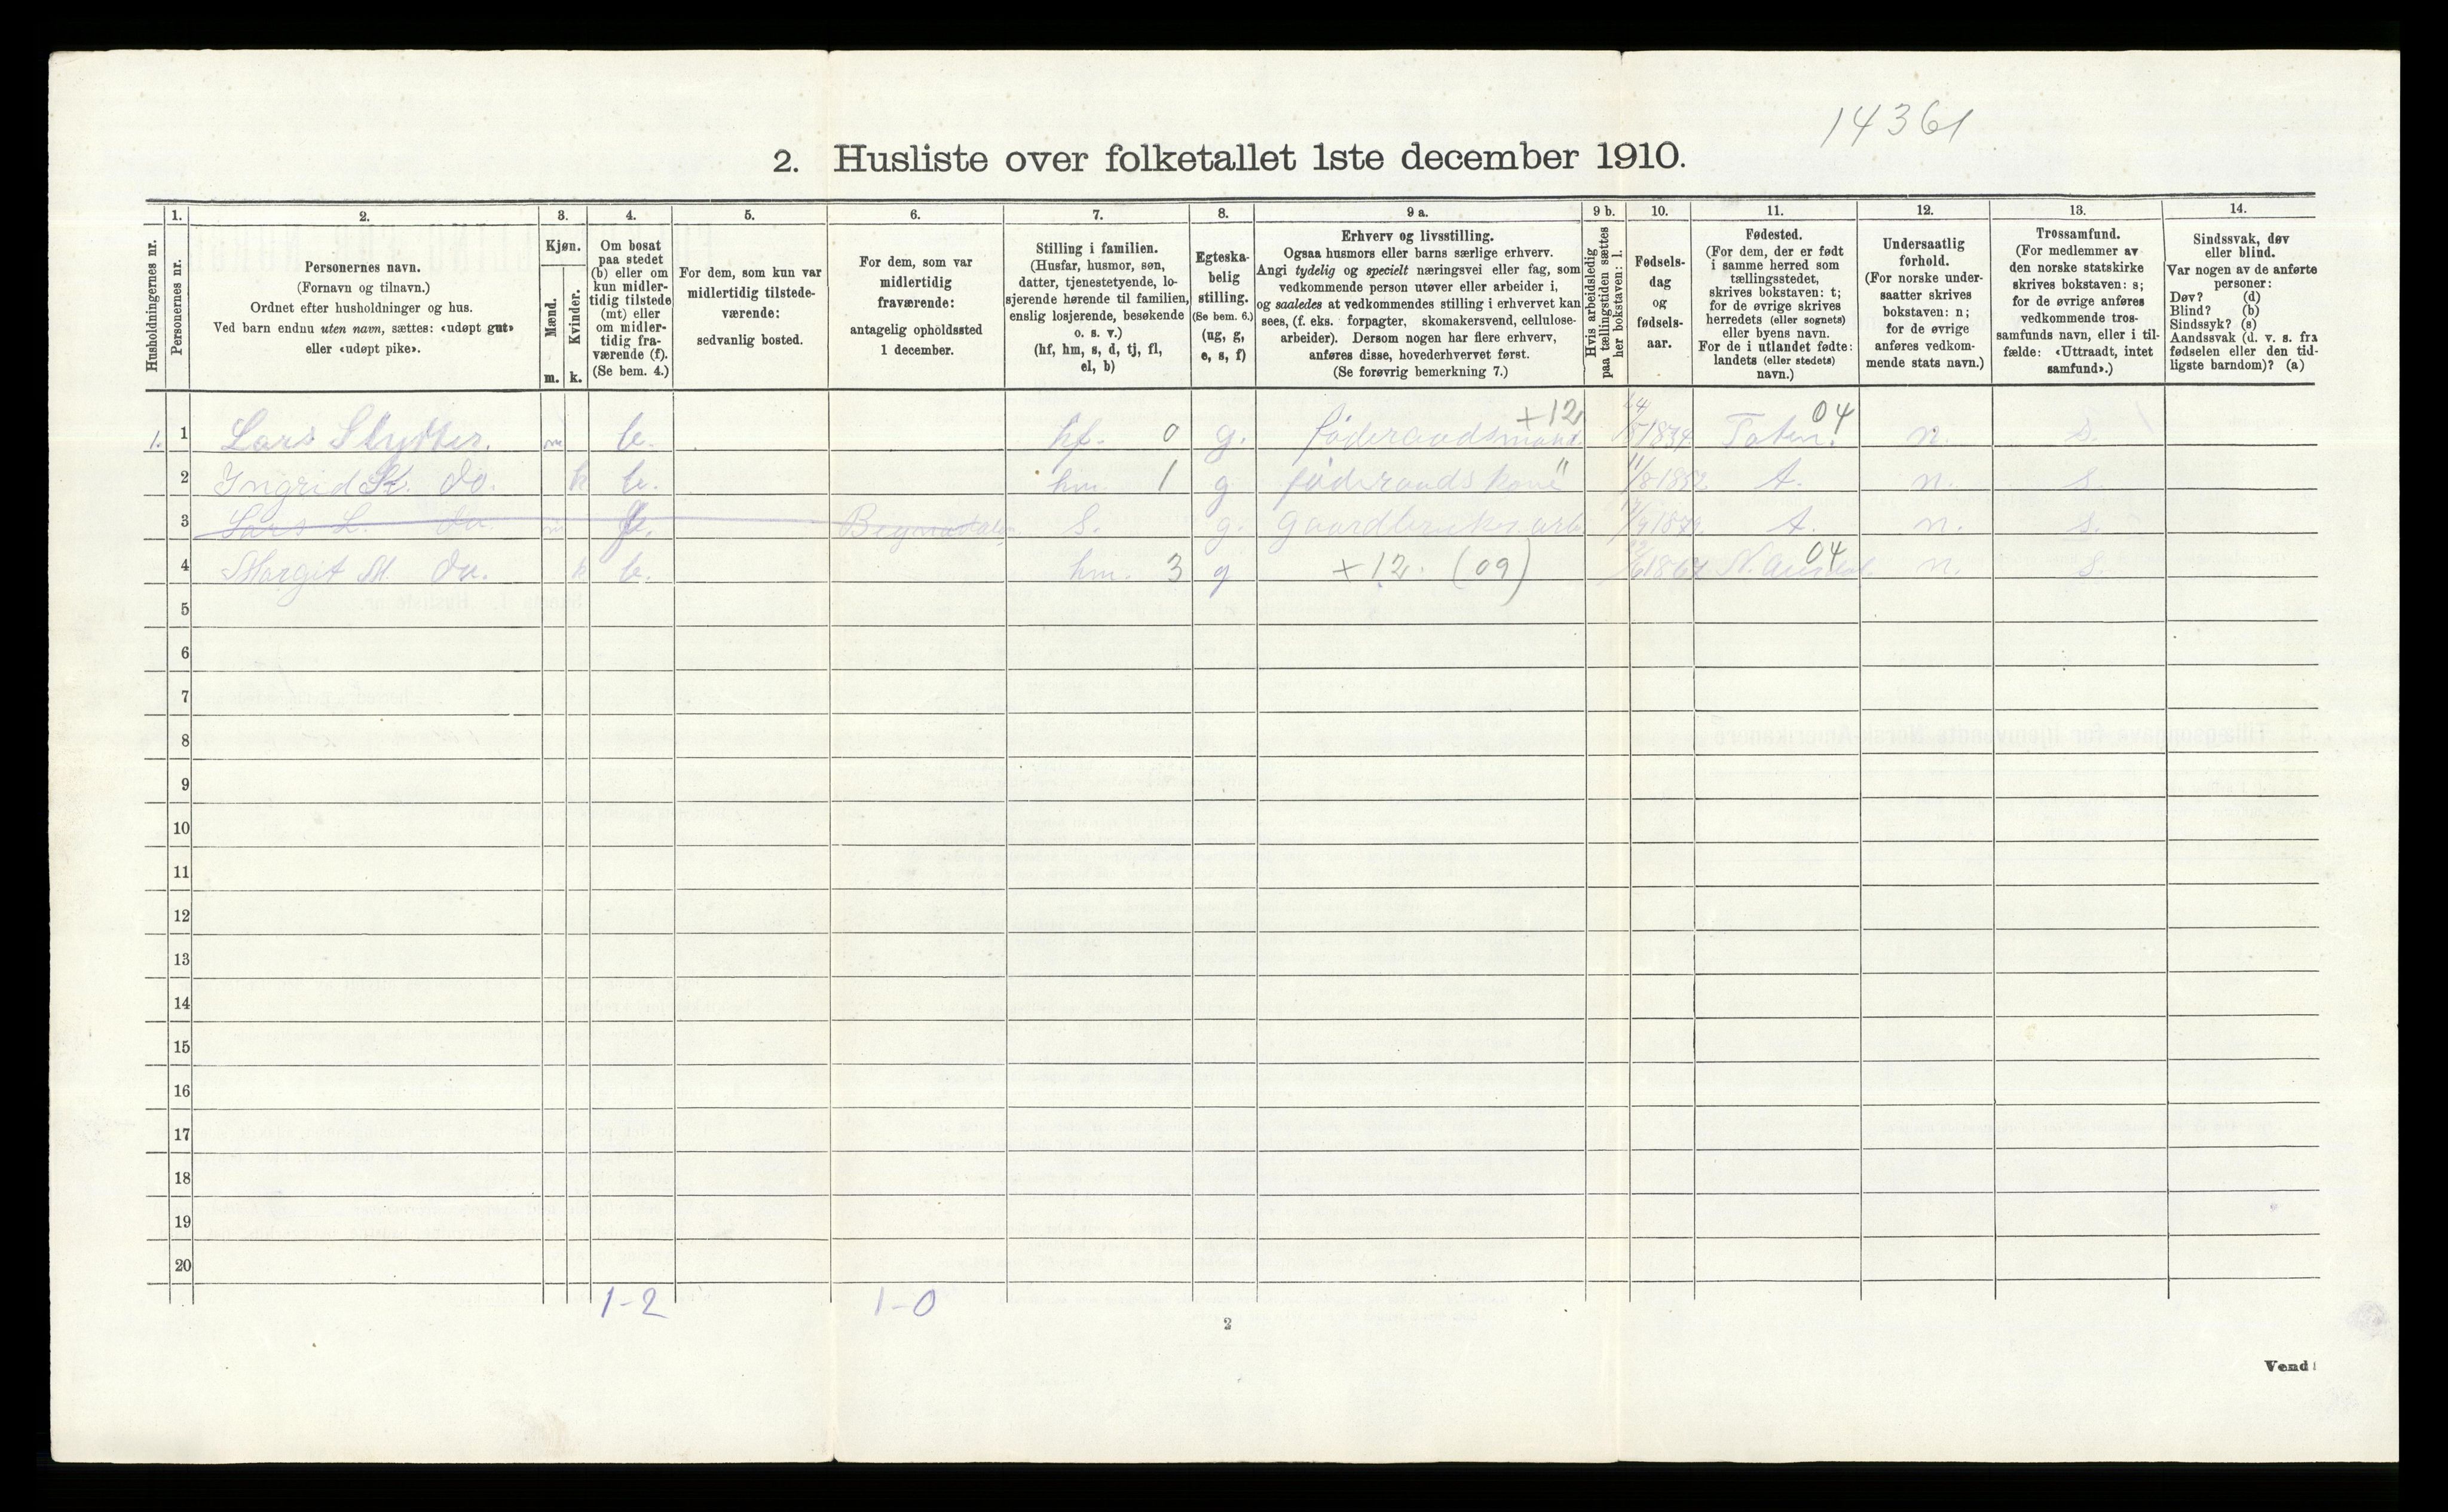 14361
2. Husliste over folketallet 1ste december 1910.
Husholdningernes nr.
1.
Personernes nr.
2.
Personernes navn.
(Fornavn og tilnavn.)
Ordnet efter husholdninger og hus.
Ved barn endnu uten navn, sættes: «udøpt gut»
eller «udøpt pike».
3.
Kjøn.
Mænd.
Kvinder.
m. k.
4.
Om bosat
paa stedet
(b) eller om
kun midler-
tidig tilstede
(mt) eller
om midler-
tidig fra-
værende (f).
(Se bem. 4.)
5.
For dem, som kun var
midlertidig tilstede-
værende:
sedvanlig bosted.
6.
For dem, som var
midlertidig
fraværende:
antagelig opholdssted
1 december.
7.
Stilling i familien.
(Husfar, husmor, søn,
datter, tjenestetyende, lo-
sjerende hørende til familien,
enslig losjerende, besøkende
o. s. v.)
(hf, hm, s, d, tj, fl,
el, b)
8.
Egteska-
belig
stilling.
(Se bem. 6.)
(ug, g,
e, s, f)
9 a.
Erhverv og livsstilling.
Ogsaa husmors eller barns særlige erhverv.
Angi tydelig og specielt næringsvei eller fag, som
vedkommende person utøver eller arbeider i,
og saaledes at vedkommendes stilling i erhvervet kan
sees, (f. eks. forpagter, skomakersvend, cellulose-
arbeider). Dersom nogen har flere erhverv,
anføres disse, hovederhvervet først.
(Se forøvrig bemerkning 7.)
9 b.
Hvis arbeidsledig
paa tællingstiden sættes
her bokstaven: l.
10.
Fødsels-
dag
og
fødsels-
aar.
11.
Fødested.
(For dem, der er født
i samme herred som
tællingsstedet,
skrives bokstaven: t;
for de øvrige skrives
herredets (eller sognets)
eller byens navn.
For de i utlandet fødte:
landets (eller stedets)
navn.)
12.
Undersaatlig
forhold.
(For norske under-
saatter skrives
bokstaven: n;
for de øvrige
anføres vedkom-
mende stats navn.)
13.
Trossamfund.
(For medlemmer av
den norske statskirke
skrives bokstaven: s;
for de øvrige anføres
vedkommende tros-
samfunds navn, eller i til-
fælde: «Uttraadt, intet
samfund».)
14.
Sindssvak, døv
eller blind.
Var nogen av de anførte
personer:
Døv? (d)
Blind? (b)
Sindssyk? (s)
Aandssvak (d. v. s. fra
fødselen eller den tid-
ligste barndom)? (a)
1. 1 Lars m b. hf. 0 g. føderaadsmand +12 1834 Toten. 04 n. s.
2 Ingrid St. do. k b. hm 1 g føderaadskone " 11/8 t. n. s.
3 Lars L. do. m f. s. g. gaardbruker arb t. n. s.
4 Margit M. do. k b. hm. 3 g +12. (09) 04 n. s.
5
6
7
8
9
10
11
12
13
14
15
16
17
18
19
20
1-2 1-0
2
Vend!